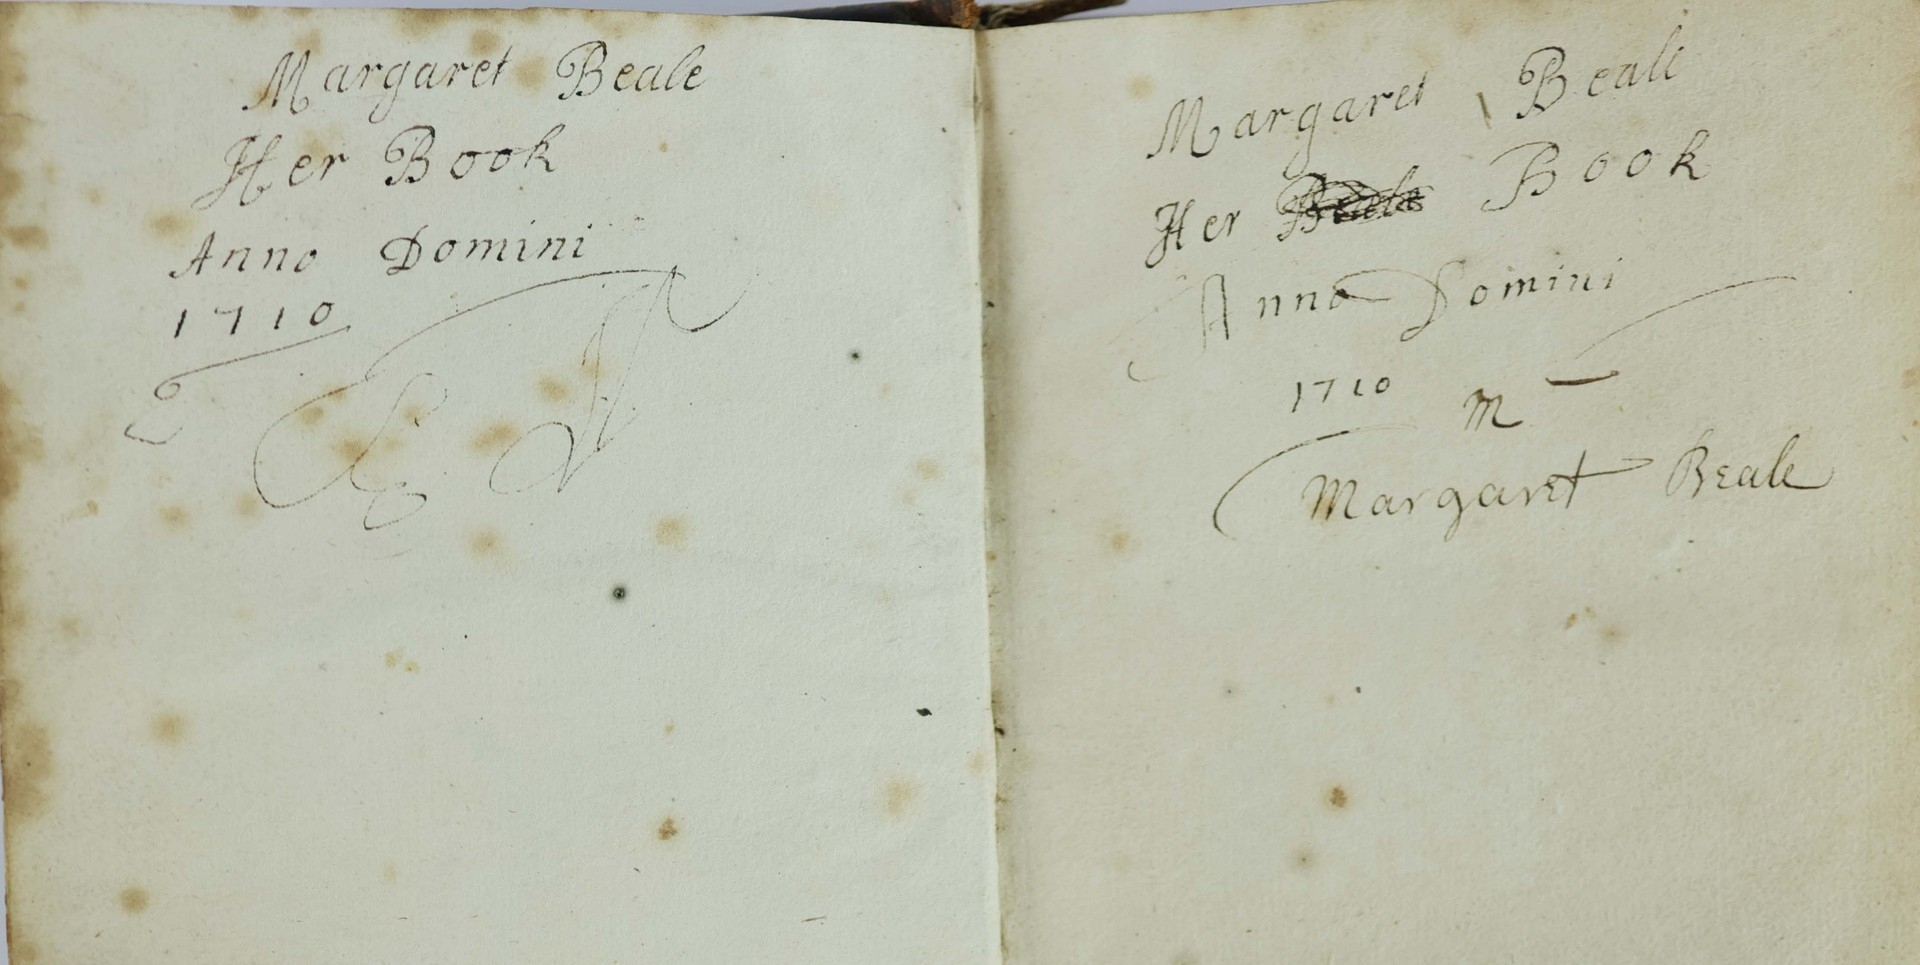 Margaret Beale
Her Book
Anno Domini
1710
Margaret Beale
Her Beale Book
Anno Domini
1710
M
Margaret Beale